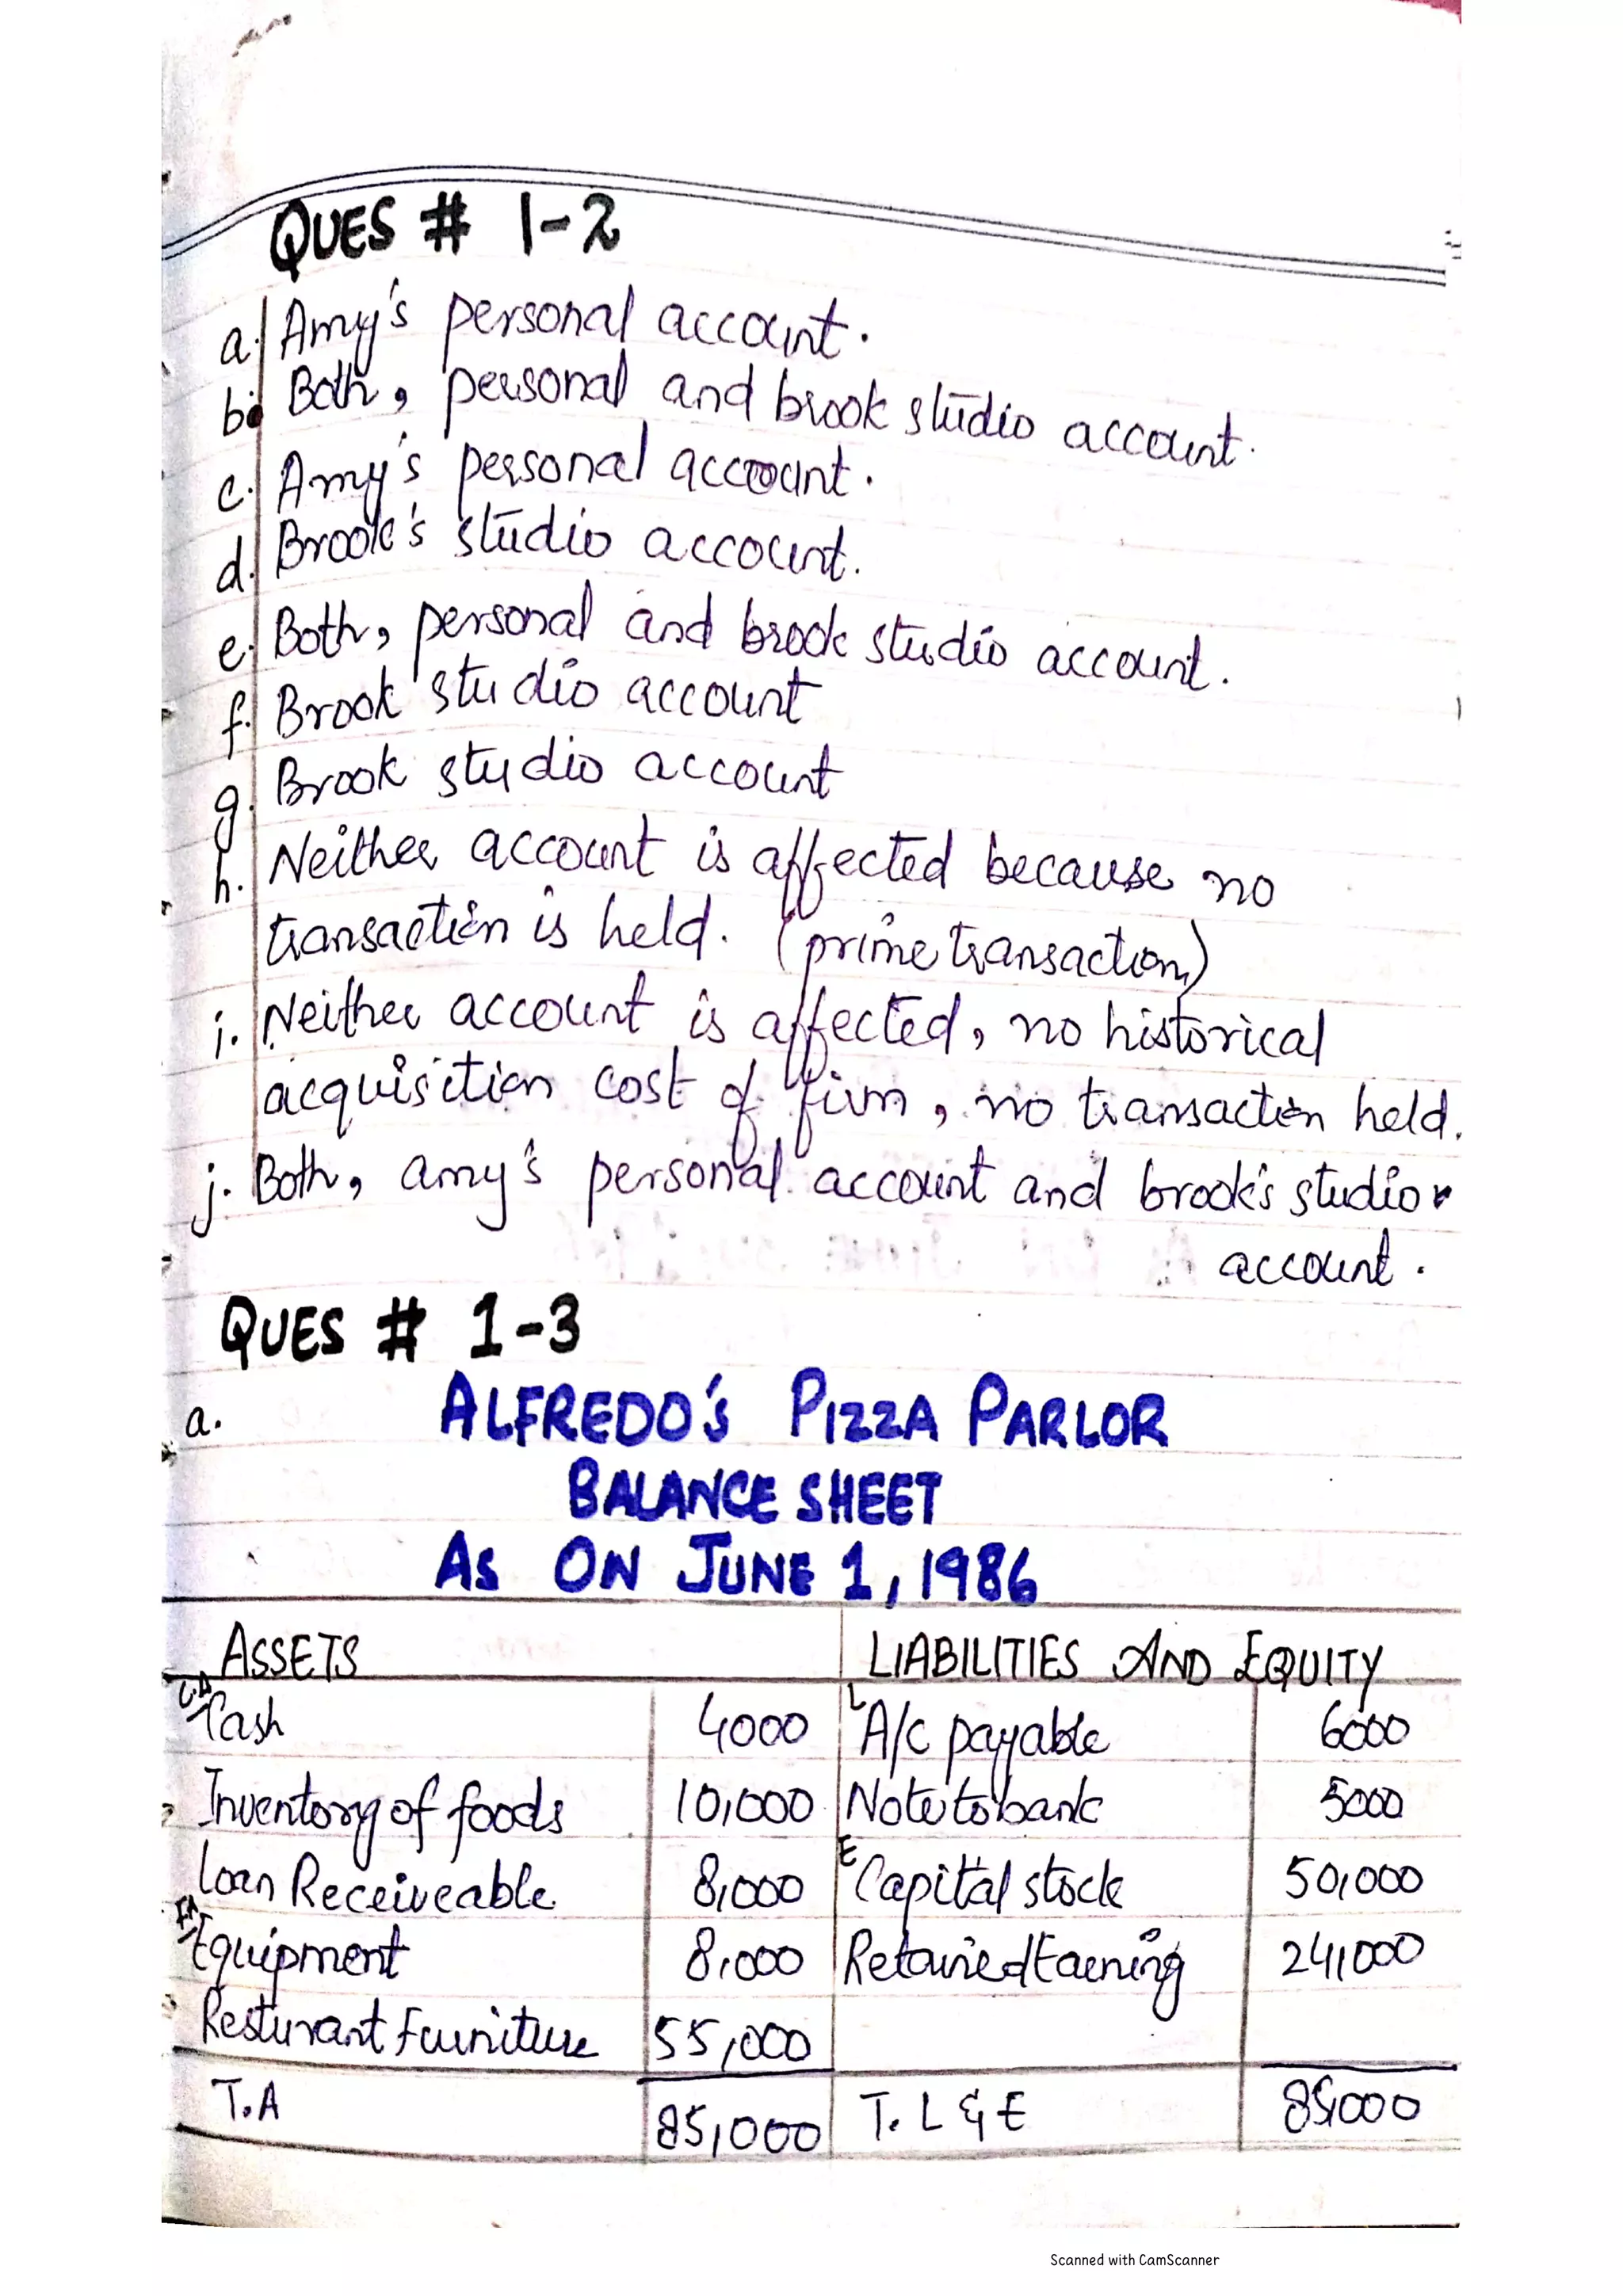 QUES # 1-2
a. Amy's personal account.
b. Both, personal and brook studio account.
c. Amy's personal account.
d. Brook's studio account.
e. Both, personal and brook studio account.
f. Brook studio account
g. Brook studio account
h. Neither account is affected because no
transaction is held. (prime transaction)
i. Neither account is affected, no historical
acquisition cost of firm, no transaction held.
j. Both, amy's personal account and brook's studio
account.
QUES # 1-3
a. ALFREDO'S PIZZA PARLOR
BALANCE SHEET
AS ON JUNE 1, 1986
ASSETS LIABILITIES AND EQUITY
C.A Cash 4000 L A/c payable 6000
Inventory of foods 10,000 Note to bank 5000
Loan Receiveable 8,000 E Capital stock 50,000
F.A Equipment 8,000 Retained Earning 24,000
Resturant Furniture 55,000
T.A 85,000 T. L & E 85,000
Scanned with CamScanner